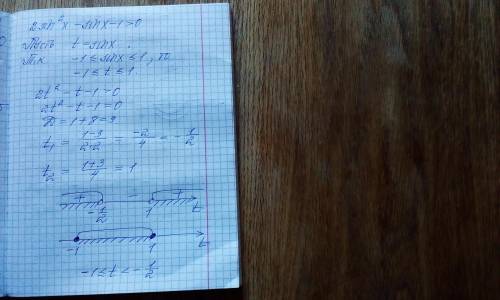 2sin²x - sinx - 1 > 0
Пусть t = sinx.
Т.к -1 ≤ sinx ≤ 1, то
-1 ≤ t ≤ 1
2t² - t - 1 > 0
2t² - t - 1 = 0
D = 1 + 8 = 9
t₁ = (1-3)/(2·2) = -2/4 = -1/2
t₂ = (1+3)/4 = 1
+ - +
-1/2 1 t
-1 1 t
-1 ≤ t < -1/2